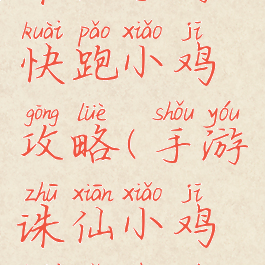 kuài pǎo xiǎo jī
快跑小鸡
gōng lüè shǒu yóu
攻略(手游
zhū xiān xiǎo jī
诛仙小鸡